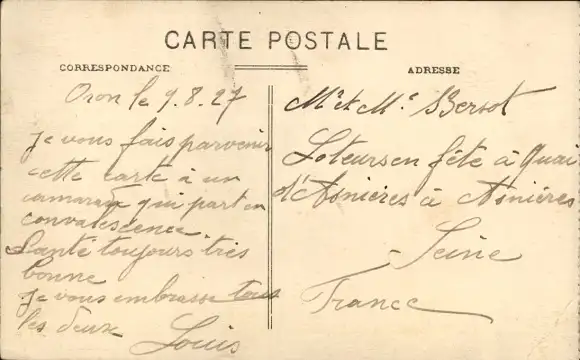 CARTE POSTALE
CORRESPONDANCE
ADRESSE
le 9.8.27
Je vous fais parvenir
cette carte à un
camarade qui part en
convalescence.
Santé toujours très
bonne
Je vous embrasse tous
les deux
Louis
Mr et Me Bersot
Loteursen fête à Quai
d'Asnières à Asnières
Seine
France